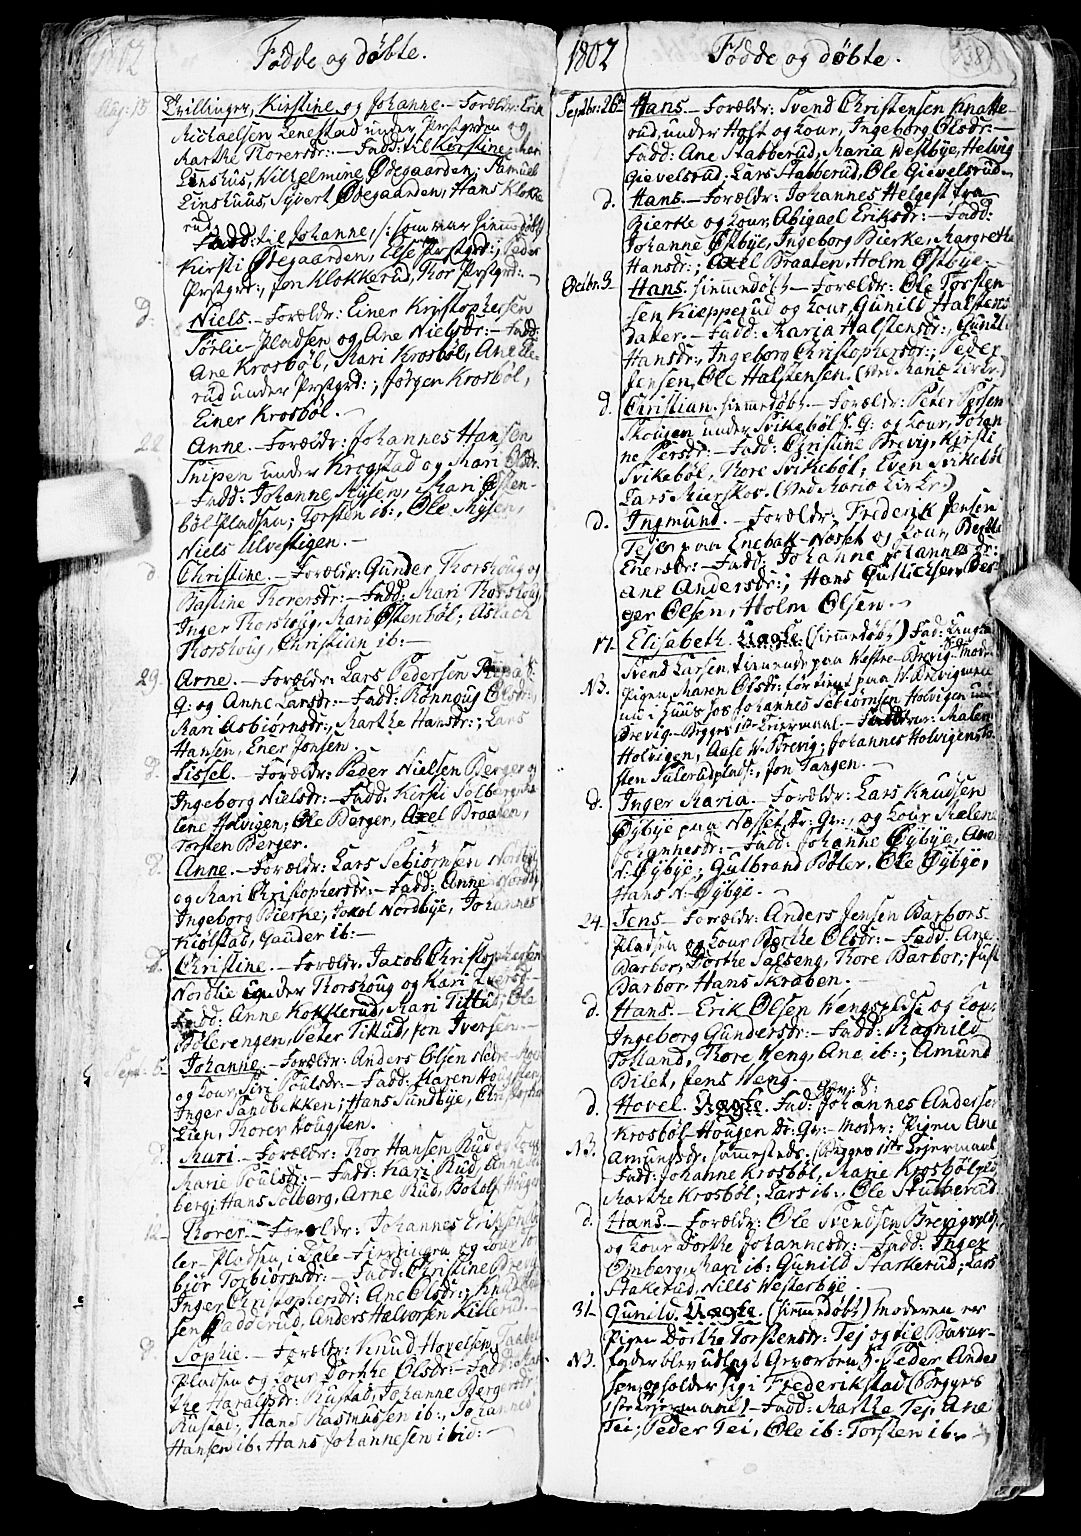 1802
Fødde og døbte.
Aug: 15
Tvillinger, Kirstine og Johanne. - Forældr: Erik
Michaelsen Lenestad under Prstgrden og
Marthe Thorersdr: - Fadd: til Kirstine: Mar
Linshuus, Wilhelmine Ødegaarden; Samuel
Linshuus, Syvert Ødegaarden, Hans Klokke
rud.
Fadd: til Johanne, /: som var hiemdøbt
Kirsti Ødegaarden, Else Prstgrd:, Peder
Prstgrd:, Jon Klokkerud, Thor Prstgrd: -
d.
Niels. - Forældr: Einer Kristophersen
Sørlie-Pladsen og Ane Nielsdr: - Fadd:
Ane Krosbøl, Mari Krosbøl, Ane
rud under Prstgrd:; Jørgen Krosbøl,
Einer Krosbøl. -
22
Anne. - Forældr: Johannes Hansen
Snipen under Krogstad og Mari Olsdr:
- Fadd: Johanne Mysen, Mari Østen-
bøl Pladsen; Torsten ib:, Ole Mysen,
Niels Ulvestigen. -
d
Christine. - Forældr: Gunder Thorshoug og
Bastine Thorersdr: - Fadd: Mari Thorshoug
Inger Thorshoug, Mari Østenbøl; Aslach
Thorshoug, Christian ib: -
29.
Arne. - Forældr: Lars Pedersen
G: og Anne Larsdr: - Fadd: Rønnoug Olsdr:,
Mari Asbiørnsdr:, Marthe Hansdr:; Lars
Hansen, Ener Jonsen
d.
Sissel. - Forældr: Peder Nielsen Berger og
Ingeborg Nielsdr: - Fadd: Kirsti Solberg, Ma
lene Holvigen; Ole Berger, Axel Braaten,
Torsten Berger.
d.
Anne. - Forældr: Lars Sebiørnsen Nordbye
og Mari Christophersdr: - Fadd: Anne Nordby
Ingeborg Bierke; Jokol Nordbye, Johannes
Kiølstad, Gauder ib: -
d.
Christine. - Forældr: Jacob Christophersen
Nordlie under Thorshoug og Kari Iversd -
Fadd: Anne Kokkerud, Mari Tittud; Ole
Bølerengen, Peter Tittud, Jon Iversen. -
Sept: 5
Johanne - Forældr: Anders Olsen
og Kour Siri Poulsdr: - Fadd: Maren Hougsten,
Inger Sandbekken; Hans Sundbye, Christopher
Lien, Thorer Hougsten.
d.
Mari. - Forældr: Thor Hansen Rud og Kour
Marie Poulsdr: - Fadd: Kari Rud, Anne Sol
berg; Hans Solberg, Arne Rud, Botolf
12
Thorer. - Forældr: Johannes Eriksen
ler-Pladsen, i Lale-Fierdingen og Kour Tor
biør Torbiørnsdr: - Fadd: Christine
Inger Christophersdr: Ane Olsdr:; Knud
sen Padderud, Anders Halvorsen Killerud. -
d.
Sophie. - Forældr: Knud Hovelsen
Pladsen og Kour Dorthe Olsdr: - Fadd: Mar
the Haraldsdr: Rustad, Johanne Berger
Rustad; Hans Rasmussen ib:, Johannes
Hansen ib: Hans Johannesen ibid: -
1802
Fødde og døbte.
138
Septbr: 26de
Hans. - Forældr: Svend Christensen Knatte-
rud, under Hoft og Kour, Ingeborg Olsdr: -
Fadd: Ane Stabberud, Maria Westbye, Helvig
Gievelsrud; Lars Stabberud, Ole Gievelsrud. -
d.
Hans. - Forældr: Johannes Helgest fra
Bierke og Kour, Abigael Eriksdr: - Fadd:
Johanne Østbye, Ingeborg Bierke, Margrethe
Hansdr:; Axel Braaten, Holm Østbye. -
Octbr: 3
Hans. hiemmedøbt - Forældr: Ole Torsten-
sen Kiepperud og Kour, Gunild Halstens-
datter. - Fadd: Maria Halstensdr:, Gunild
Hansdr:, Ingeborg Christophersdr:; Peder
Jensen, Ole Halstensen. (Ved Mariæ Kirke.)
d.
Christian. hiemmedøbt. - Forældr: Peter Persen
Skougen under Svikebøl S. G: og Kour, Johan
ne Persdr: - Fadd: Christine Brevig, Kirsti
Svikebøl, Thore Svikebøl; Even Svikebøl
Lars Kierskov. (Ved Mariæ Kirke.)
d.
Ingmund. - Forældr: Friderik Jensen
Tejen paa Enebak-Næsset og Kour, Berthe
Enersdr: - Fadd: Johanne Johannesdr:
Ane Andersdr:; Hans Gullichsen, Ber
ger Olsen, Holm Olsen. -
17.
N3.
Elisabeth. Uægte. (hiemmedøbt) Fad: Ungkarl
Svend Larsen hiemme paa Westre-Brevig. Moder:
Pigen Maren Olsdr: før tient paa W. Brevig men
nu i huus hos Johannes Sebiørnsen Holvigen und:
Brevig - Begges 1ste Leiermaal. - Faddere: Malene
Holvigen, Aase W. Brevig; Johannes Holvigen, Tor
sten Sulerudplads:, Jon Tangen. -
d.
Inger Maria. - Forældr: Lars Knudsen
Øybye paa Næsset, Dr: Gr:, og Kour Malene
Johannesdr: - Fadd: Johanne Øybye, Ane
N. Øybye; Gulbrand Bøler, Ole Øybye,
Hans N. Øybye. -
24
Jens - Forældr: Anders Jensen Barbors-
pladsen og Kour Berthe Olsdr: - Fadd: Ane
Barbor, Dorthe Salseng, Thore Barbor; Just
Barbor, Hans Skraben. -
d.
Hans. - Erik Olsen Wengspldsn og Kour
Ingeborg Gundersdr: - Fadd: Ragnild
Tolland, Thore Weng, Ane ib:; Amund
Dilet, Jens Weng. -
d.
N3.
Hovel. Uægte. Fad: Grv: S: Johannes Andersen
Krosbøl-Hougen Dr: Gr: - Moder: Pigen Ane
Amundsdr: sammesteds. (Begges 1ste Leiermaal
- Fadd: Johanne Krosbøl, Marie Krosbølpld.
Marthe Krosbøl; Lars ib:. Ole Stutterud.
d.
Hans. - Forældr: Ole Svendsen Brevigpldsn
og Kour Dorthe Johannesdr: - Fadd: Inger
Omberg, Mari ib: Gunild Starkerud; Lars
Stakerud, Niels Westerbye.
31.
N3.
Gunild. Uægte. (hiemmedøbt) Moderen er
Pigen Dorthe Torstensdr: Tej og til Barne-
fader blev udlagt Grvørers S: Peder Ander
sen, opholder sig i Frederikstad (Begges
1ste Leiermaal) - Fadd: Marthe Tej, Ane
Tei; Peder Tei, Ole ib: Torsten ib. -